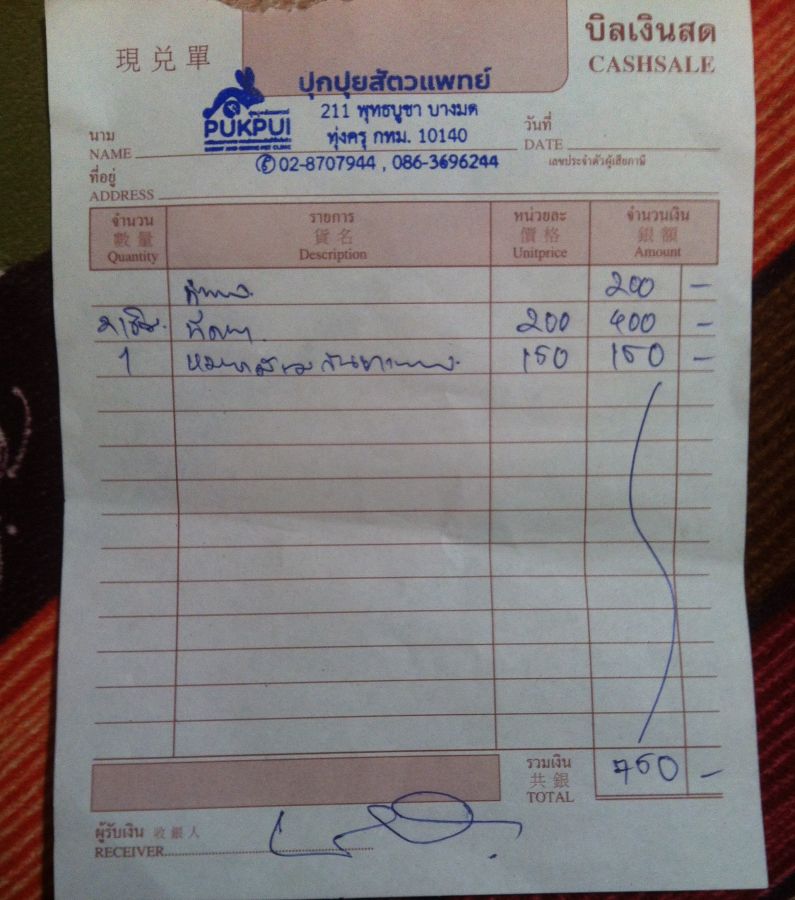 現兑單
บิลเงินสด
CASHSALE
ปุกปุยสัตวแพทย์
PUKPUI
211 พุทธบูชา บางมด
ทุ่งครุ กทม. 10140
02-8707944 , 086-3696244
นาม
NAME
วันที่
DATE
เลขประจำตัวผู้เสียภาษี
ที่อยู่
ADDRESS
จำนวน รายการ หน่วยละ จำนวนเงิน
數量 貨名 價格 銀額
Quantity Description Unitprice Amount
200 –
200 400 –
1 150 150 –
รวมเงิน
共銀
TOTAL
750 –
ผู้รับเงิน 收銀人
RECEIVER